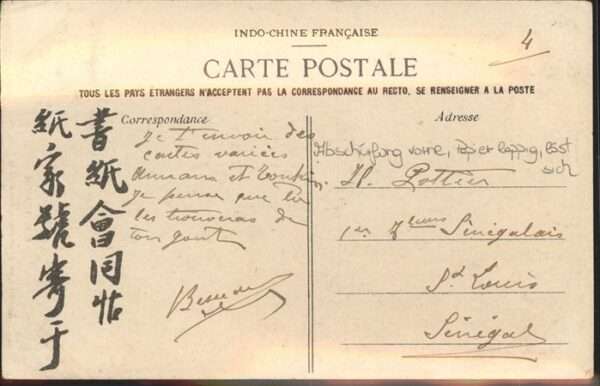 INDO-CHINE FRANÇAISE
4
CARTE POSTALE
TOUS LES PAYS ÉTRANGERS N'ACCEPTENT PAS LA CORRESPONDANCE AU RECTO, SE RENSEIGNER A LA POSTE
Correspondance
Je t'envoie des
cartes variées
Annam et Tonkin
Je pense que tu
les trouveras de
ton gout
書紙會同帖
紙家號寄于
Adresse
Abschürfung vorne, Papier lappig, löst
sich
Pottier
1er Sénégalais
St Louis
Sénégal